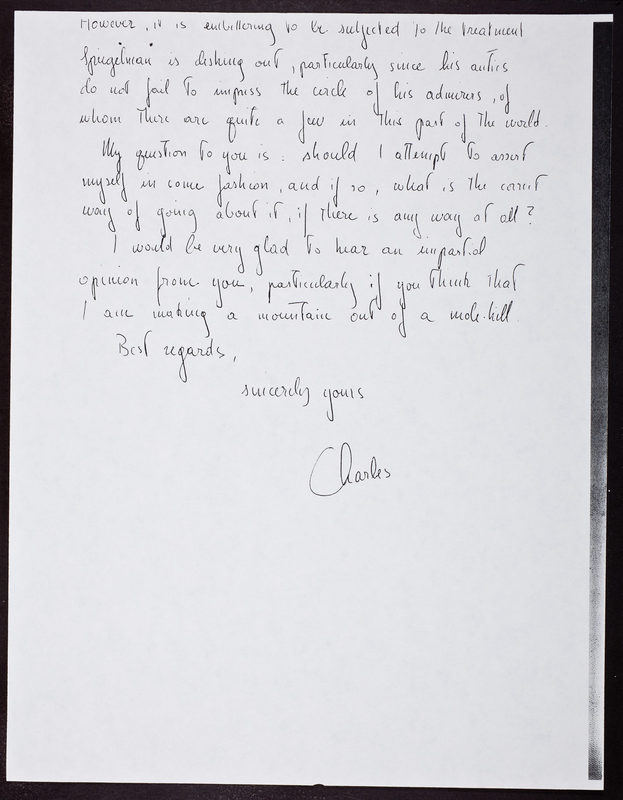 However, it is embittering to be subjected to the treatment
Spiegelman is dishing out, particularly since his antics
do not fail to impress the circle of his admirers, of
whom there are quite a few in this part of the world.
My question to you is: should I attempt to assert
myself in some fashion, and if so, what is the correct
way of going about it, if there is any way at all?
I would be very glad to hear an impartial
opinion from you, particularly if you think that
I am making a mountain out of a mole-hill.
Best regards,
sincerely yours
Charles